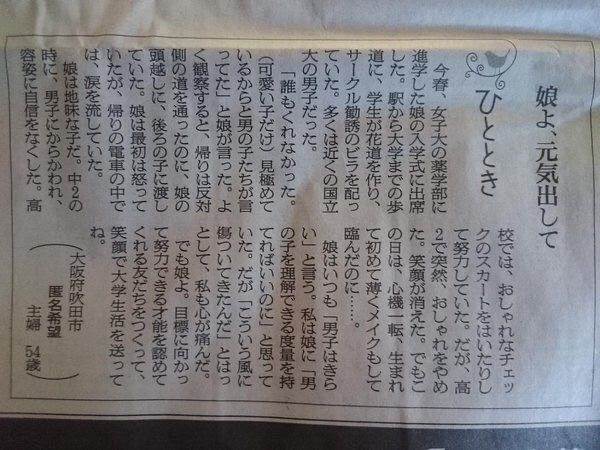 娘よ、元気出して
ひととき
今春、女子大の薬学部に
進学した娘の入学式に出席
した。駅から大学までの歩
道に、学生が花道を作り、
サークル勧誘のビラを配っ
ていた。多くは近くの国立
大の男子だった。
「誰もくれなかった。
(可愛い子だけ)見極めて
いるからと男の子たちが言
ってた」と娘が言った。よ
く観察すると、帰りは反対
側の道を通ったのに、娘の
頭越しに、後ろの子に渡し
ていた。娘は最初は怒って
いたが、帰りの電車の中で
は、涙を流していた。
娘は地味な子だ。中2の
時に、男子にからかわれ、
容姿に自信をなくした。高
校では、おしゃれなチェッ
クのスカートをはいたりし
て努力していた。だが、高
2で突然、おしゃれをやめ
た。笑顔が消えた。でもこ
の日は、心機一転、生まれ
て初めて薄くメイクもして
臨んだのに……。
娘はいつも「男子はきら
い」と言う。私は娘に「男
の子を理解できる度量を持
てればいいのに」と思って
いた。だが「こういう風に
傷ついてきたんだ」とはっ
として、私も心が痛んだ。
でも娘よ。目標に向かっ
て努力できる才能を認めて
くれる友だちをつくって、
笑顔で大学生活を送って
ね。
(大阪府吹田市
匿名希望
主婦 54歳)